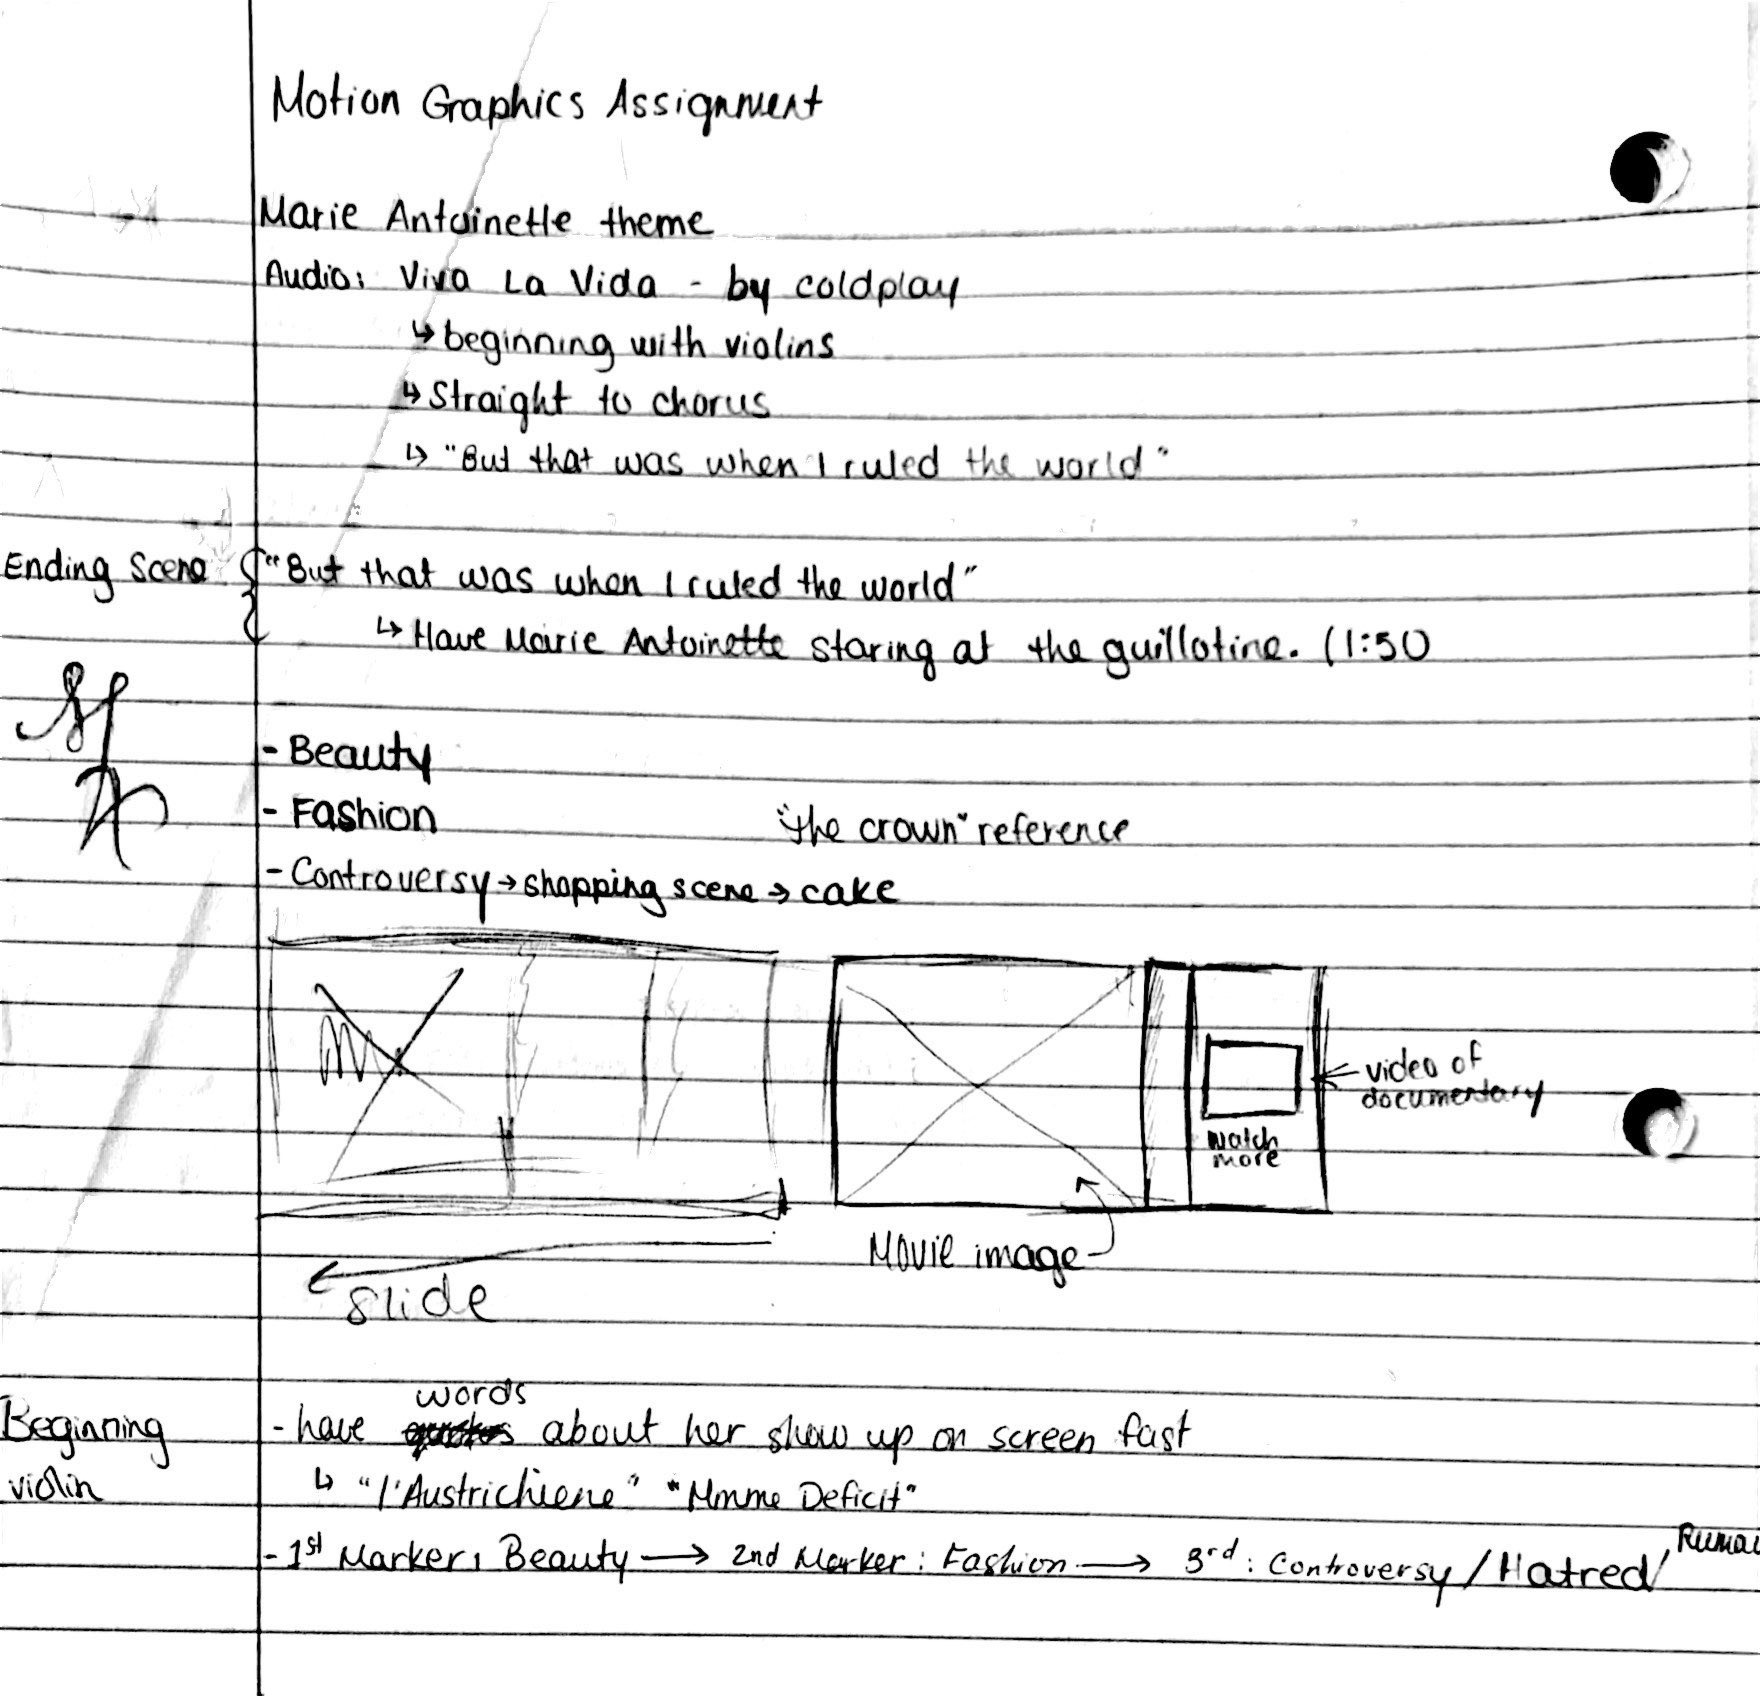 Motion Graphics Assignment
Marie Antoinette theme
Audio: Viva La Vida - by coldplay
↳ beginning with violins
↳ Straight to chorus
↳ "But that was when I ruled the world"
Ending Scene { "But that was when I ruled the world"
↳ Have Marie Antoinette staring at the guillotine. (1:50
- Beauty
- Fashion
"the crown" reference
- Controversy → shopping scene → cake
video of
documentary
watch
more
Movie image
slide
words
Beginning
violin
- have about her show up on screen fast
↳ "l'Austrichiene" "Mmme Deficit"
- 1st Marker: Beauty → 2nd Marker: Fashion → 3rd: Controversy / Hatred /